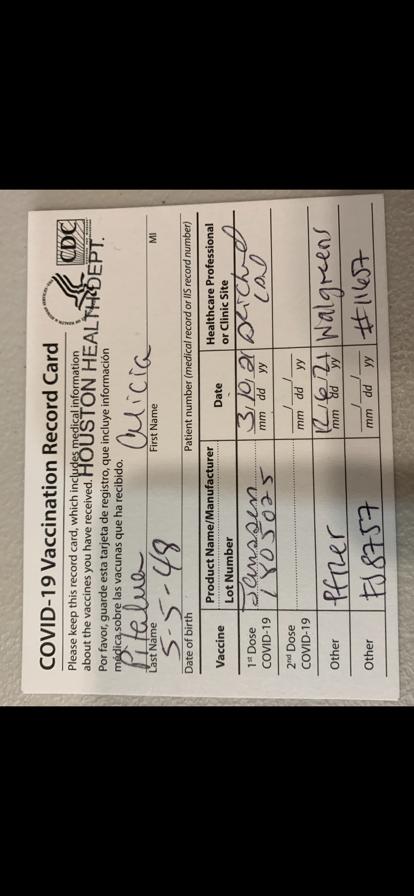 COVID-19 Vaccination Record Card
CDC
Please keep this record card, which includes medical information
about the vaccines you have received. HOUSTON HEALTH DEPT.
Por favor, guarde esta tarjeta de registro, que incluye información
médica sobre las vacunas que ha recibido.
Alicia
Last Name First Name MI
5-5-48
Date of birth Patient number (medical record or IIS record number)
Vaccine Product Name/Manufacturer Date Healthcare Professional
Lot Number or Clinic Site
1st Dose Janssen 3/9/21
COVID-19 1805025 mm dd yy
2nd Dose __/__/__
COVID-19 mm dd yy
Other Pfizer 12/6/21 Walgreens
mm dd yy
Other FJ8757 __/__/__ #11657
mm dd yy